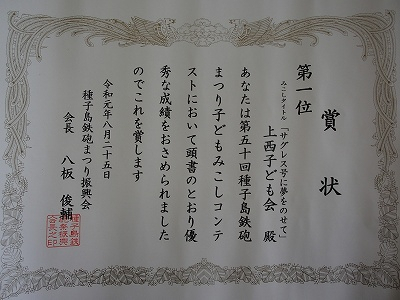 賞状
第一位
みこしタイトル 「サグレス号に夢をのせて」
上西子ども会 殿
あなたは第五十回種子島鉄砲
まつり子どもみこしコンテ
ストにおいて頭書のとおり優
秀な成績をおさめられました
のでこれを賞します
令和元年八月二十五日
種子島鉄砲まつり振興会
会長 八板 俊輔